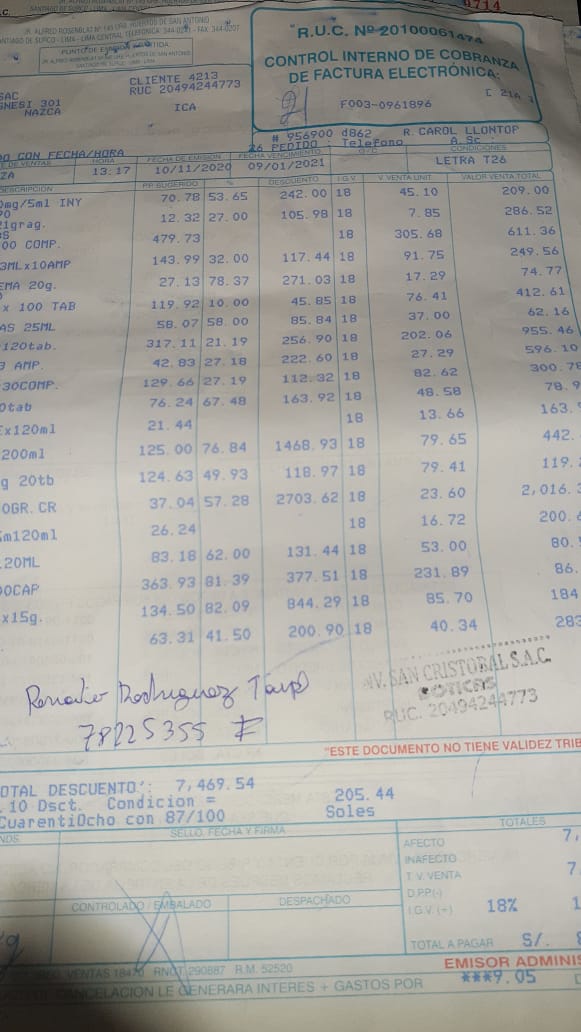 0714
JR. ALFRED ROSENBLAT Nº 145 URB. HUERTOS DE SAN ANTONIO
SANTIAGO DE SURCO - LIMA - LIMA CENTRAL TELEFONICA 344-0207 - FAX. 344-0207
PUNTO DE EMISION
"R.U.C. Nº 20100061474
CONTROL INTERNO DE COBRANZA
DE FACTURA ELECTRÓNICA:
F003-0961896
CLIENTE 4213
SAC RUC 20494244773
GNESI 301
NAZCA ICA
# 956900 d862 R. CAROL LLONTOP
26 PEDIDO : Telefono A. Sc
DO CON FECHA/HORA
DE VENTAS HORA FECHA DE EMISION FECHA VENCIMIENTO O/C CONDICIONES
ZA 13.17 10/11/2020 09/01/2021 LETRA T26
DESCRIPCION P.P. SUGERIDO % DESCUENTO I.G.V. V. VENTA UNIT. VALOR VENTA TOTAL
0mg/5ml INY 70.78 53.65 242.00 18 45.10 209.00
21grag. 12.32 27.00 105.98 18 7.85 286.52
00 COMP. 479.73 18 305.68 611.36
3MLx10AMP 143.99 32.00 117.44 18 91.75 249.56
EMA 20g. 27.13 78.37 271.03 18 17.29 74.77
x 100 TAB 119.92 10.00 45.85 18 76.41 412.61
AS 25ML 58.07 58.00 85.84 18 37.00 62.16
120tab. 317.11 21.19 256.90 18 202.06 955.46
3 AMP. 42.83 27.18 222.60 18 27.29 596.10
30COMP. 129.66 27.19 112.32 18 82.62 300.78
0tab 76.24 67.48 163.92 18 48.58 78.9
Ex120ml 21.44 18 13.66 163.
200ml 125.00 76.84 1468.93 18 79.65 442.
g 20tb 124.63 49.93 118.97 18 79.41 119.
0GR.CR 37.04 57.28 2703.62 18 23.60 2,016.
5m120ml 26.24 18 16.72 200.
120ML 83.18 62.00 131.44 18 53.00 80.
00CAP 363.93 81.39 377.51 18 231.89 86.
x15g. 134.50 82.09 844.29 18 85.70 184
63.31 41.50 200.90 18 40.34 283
INV. SAN CRISTOBAL S.A.C.
BOTICAS
RUC. 20494244773
Renato Rodriguez
78225355
"ESTE DOCUMENTO NO TIENE VALIDEZ TRIB
OTAL DESCUENTO.: 7,469.54
. 10 Dsct. Condicion = 205.44
CuarentiOcho con 87/100 Soles
SELLO, FECHA Y FIRMA
TOTALES
AFECTO 7,
INAFECTO
T. V. VENTA 7.
D.P.P.(-)
I.G.V. (+) 18% 1
TOTAL A PAGAR S/. 8
CONTROLADO / EMBALADO DESPACHADO
VENTAS 18470 RNCT 290887 R.M. 52520
EMISOR ADMINIS
CANCELACION LE GENERARA INTERES + GASTOS POR ***9.05